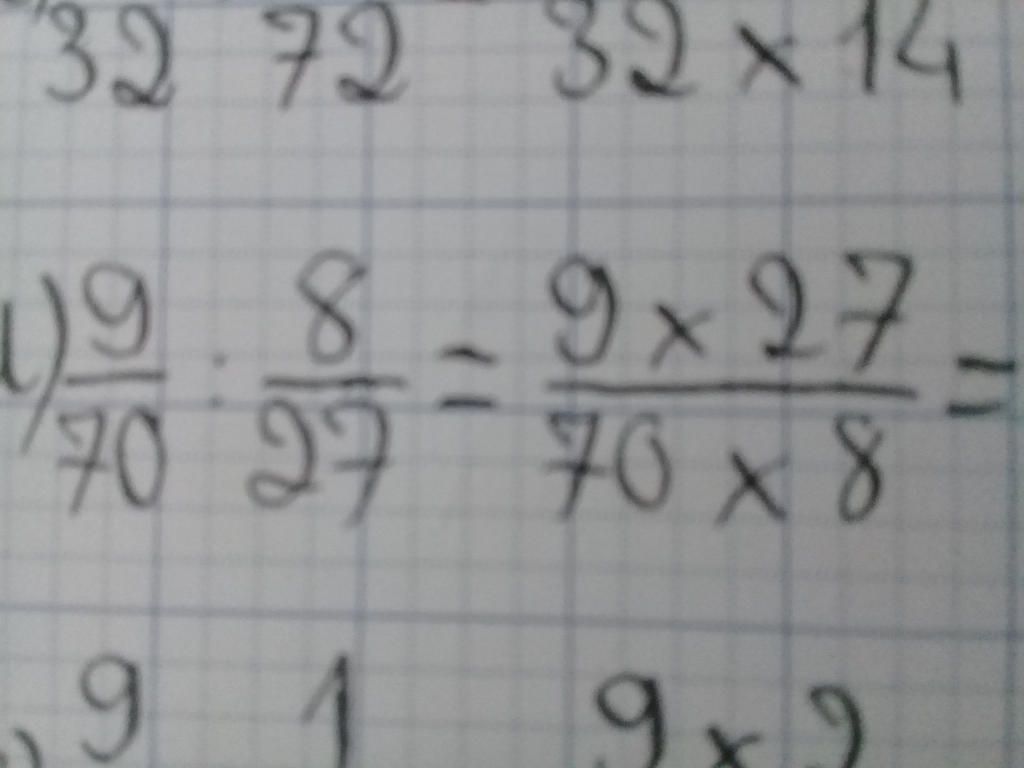 32 72 32 x 14
9/70 : 8/27 = 9 x 27 / 70 x 8 =
9 1 9 x 2